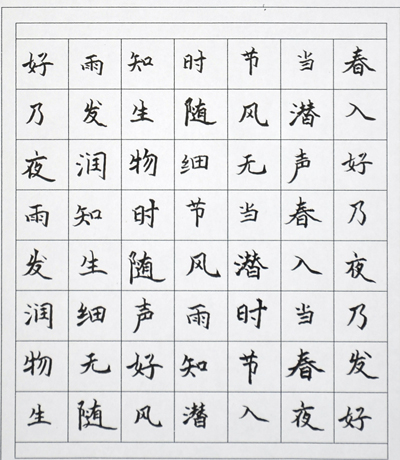 好雨知时节当春
乃发生随风潜入
夜润物细无声好
雨知时节当春乃
发生随风潜入夜
润细声雨时当乃
物无好知节春发
生随风潜入夜好